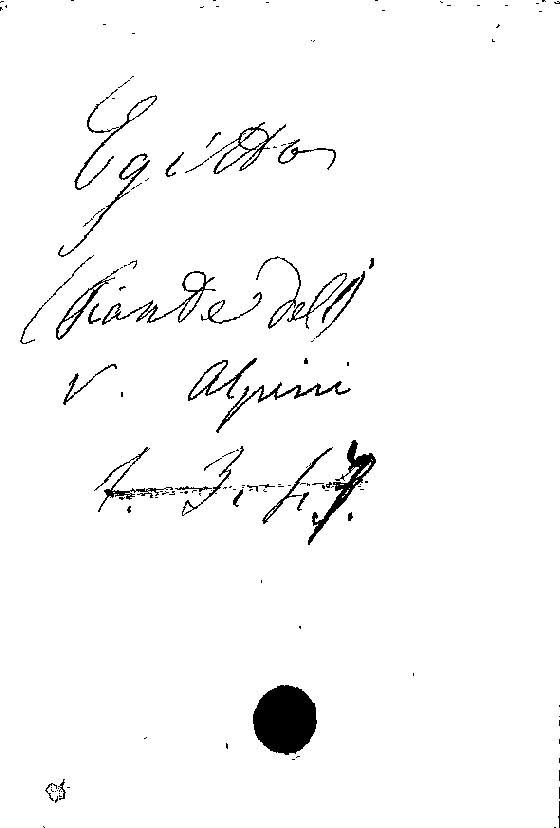 Egitto
(Piante dell'
V. Alpini